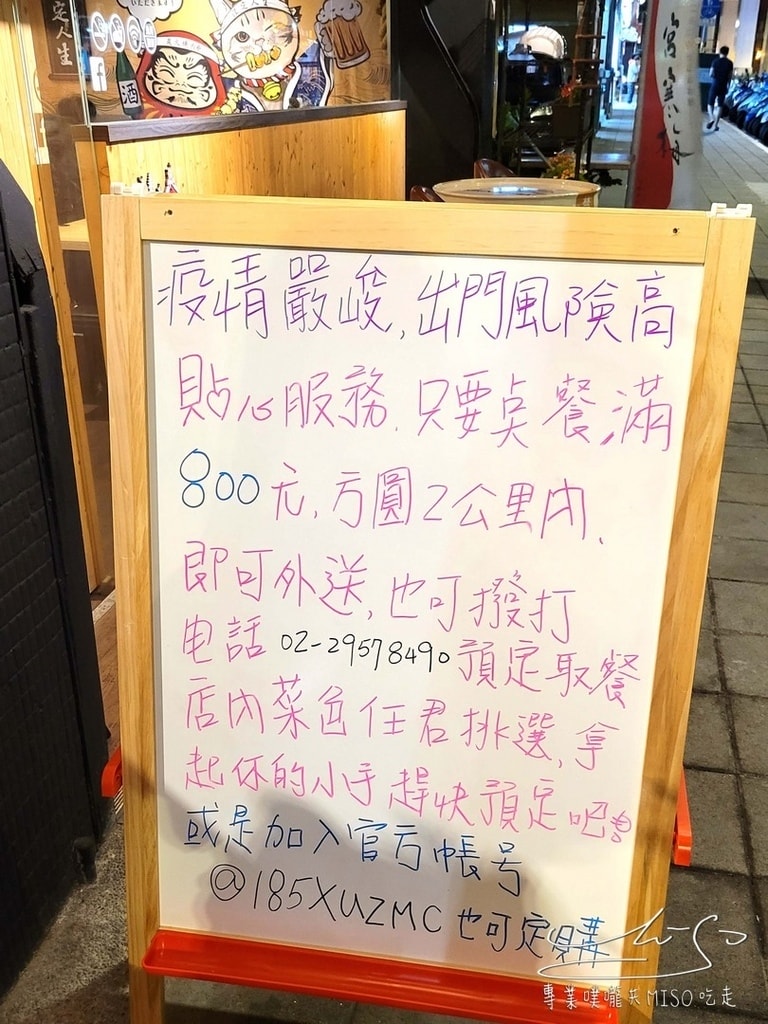 酒
疫情嚴峻,出門風險高
貼心服務.只要点餐,滿
800元,方圓2公里內、
即可外送,也可撥打
电話 02-29578490 預定取餐
店內菜色任君挑選,拿
起你的小手趕快預定吧!
或是加入官方帳号
@185XUZMC 也可定購
MISO
專業噗嚨共MISO吃走